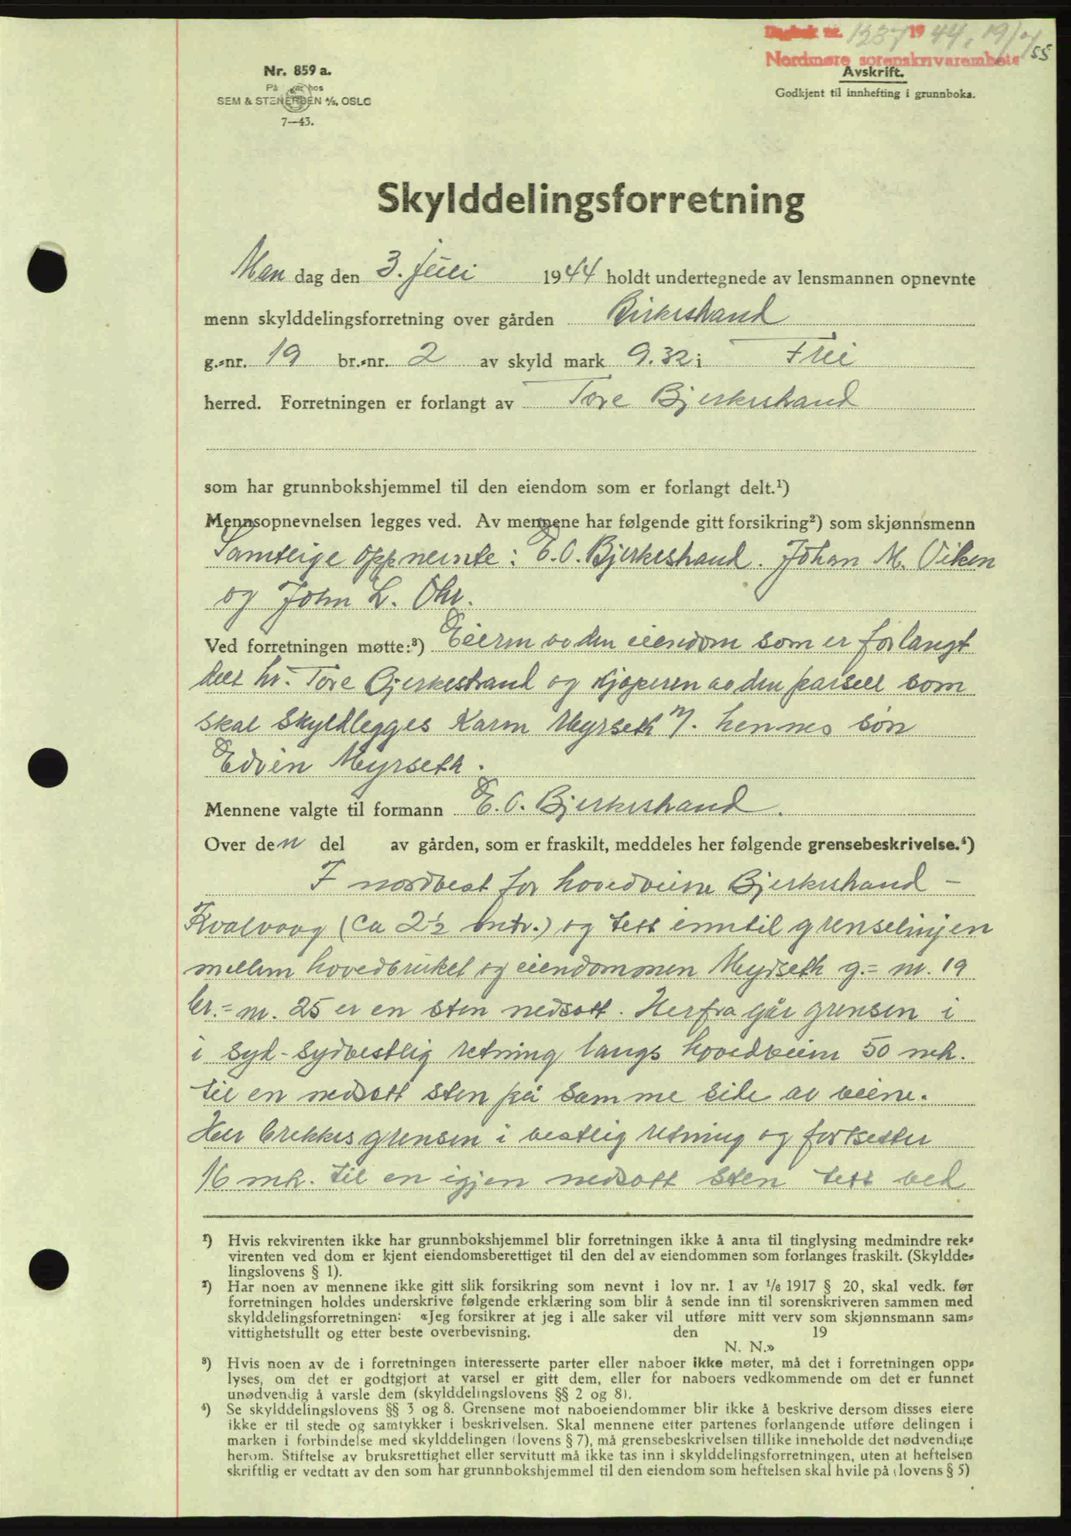 Dagbok nr. 1237 1944, 19/7
Nordmøre sorenskrivarembete
55
Nr. 859 a.
På lager hos
SEM & STENERSEN A/S, OSLO
7—43.
Avskrift.
Godkjent til innhefting i grunnboka.
Skylddelingsforretning
Man dag den 3. juli 1944 holdt undertegnede av lensmannen opnevnte
menn skylddelingsforretning over gården Birkestrand
g.-nr. 19 br.-nr. 2 av skyld mark 9.32 i Frei
herred. Forretningen er forlangt av Tore Bjerkestrand
som har grunnbokshjemmel til den eiendom som er forlangt delt.¹)
Mennsopnevnelsen legges ved. Av mennene har følgende gitt forsikring²) som skjønnsmenn
Samtlige oppnevnte: E. O. Bjerkestrand. Johan M. Viken
og John L. Ohr.
Ved forretningen møtte:³) Eieren av den eiendom som er forlangt
delt hr. Tore Bjerkestrand og kjøperen av den parsell som
skal skyldlegges Karen Myrseth v/. hennes søn
Edvin Myrseth.
Mennene valgte til formann E. O. Bjerkestrand.
Over den del av gården, som er fraskilt, meddeles her følgende grensebeskrivelse.⁴)
I nordvest for hovedveien Bjerkestrand -
Kvalvaag (ca 2½ mtr.) og tett inntil grenselinjen
mellem hovedbruket og eiendommen Myrseth g.- nr. 19
br.- nr. 25 er en sten nedsatt. Herfra går grensen i
i syd-sydvestlig retning langs hovedveien 50 mtr.
til en nedsatt sten på samme side av veien.
Her brekkes grensen i vestlig retning og fortsetter
16 mtr. til en igjen nedsatt sten tett ved
¹) Hvis rekvirenten ikke har grunnbokshjemmel blir forretningen ikke å anta til tinglysing medmindre rek-
virenten ved dom er kjent eiendomsberettiget til den del av eiendommen som forlanges fraskilt. (Skyldde-
lingslovens § 1).
²) Har noen av mennene ikke gitt slik forsikring som nevnt i lov nr. 1 av 1/6 1917 § 20, skal vedk. før
forretningen holdes underskrive følgende erklæring som blir å sende inn til sorenskriveren sammen med
skylddelingsforretningen: «Jeg forsikrer at jeg i alle saker vil utføre mitt verv som skjønnsmann sam-
vittighetsfullt og etter beste overbevisning. den 19
N. N.»
³) Hvis noen av de i forretningen interesserte parter eller naboer ikke møter, må det i forretningen opp-
lyses, om det er godtgjort at varsel er gitt dem, eller for naboers vedkommende om det er funnet
unødvendig å varsle dem (skylddelingslovens §§ 2 og 8).
⁴) Se skylddelingslovens §§ 3 og 8. Grensene mot naboeiendommer blir ikke å beskrive dersom disses eiere
ikke er til stede og samtykker i beskrivelsen. Skal mennene etter partenes forlangende utføre delingen i
marken i forbindelse med skylddelingen (lovens § 7), må grensebeskrivelsen tillike inneholde det nødvendige
herom. Stiftelse av bruksrettighet eller servitutt må ikke tas inn i skylddelingsforretningen, uten at heftelsen
skriftlig er vedtatt av den som har grunnbokshjemmel til den eiendom som heftelsen skal hvile på (lovens § 5)